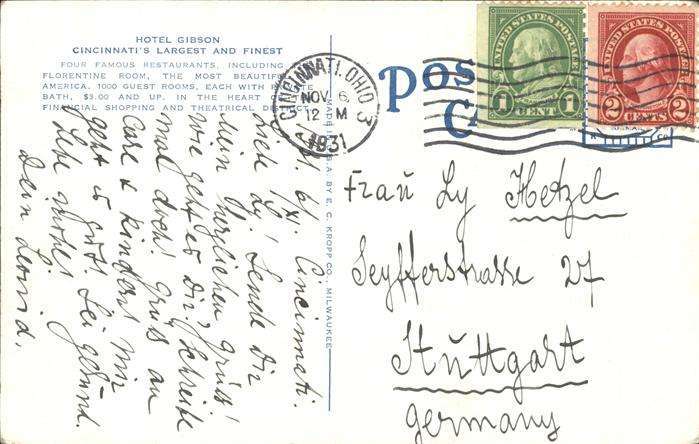 HOTEL GIBSON
CINCINNATI'S LARGEST AND FINEST
FOUR FAMOUS RESTAURANTS, INCLUDING
FLORENTINE ROOM, THE MOST BEAUTIFUL
AMERICA. 1000 GUEST ROOMS, EACH WITH PRIVATE
BATH, $3.00 AND UP. IN THE HEART OF
FINANCIAL SHOPPING AND THEATRICAL DISTRICT
CINCINNATI, OHIO 3
NOV 6
12 M
1931
POS
CA
UNITED STATES POSTAGE
1 CENT 1
UNITED STATES POSTAGE
2 CENTS 2
MADE IN U.S.A. BY E. C. KROPP CO., MILWAUKEE
6/XI. Cincinnati.
Lieb Ly! Sende Dir
einen herzlichen Gruß!
Wie geht es Dir? Schreibe
mal doch! Grüß an
Care & Kinder! Mir
geht es gut! Sei gesund.
Lebe wohl
Dein
Frau Ly Hetzel
Seyfferstrasse 27
Stuttgart
Germany